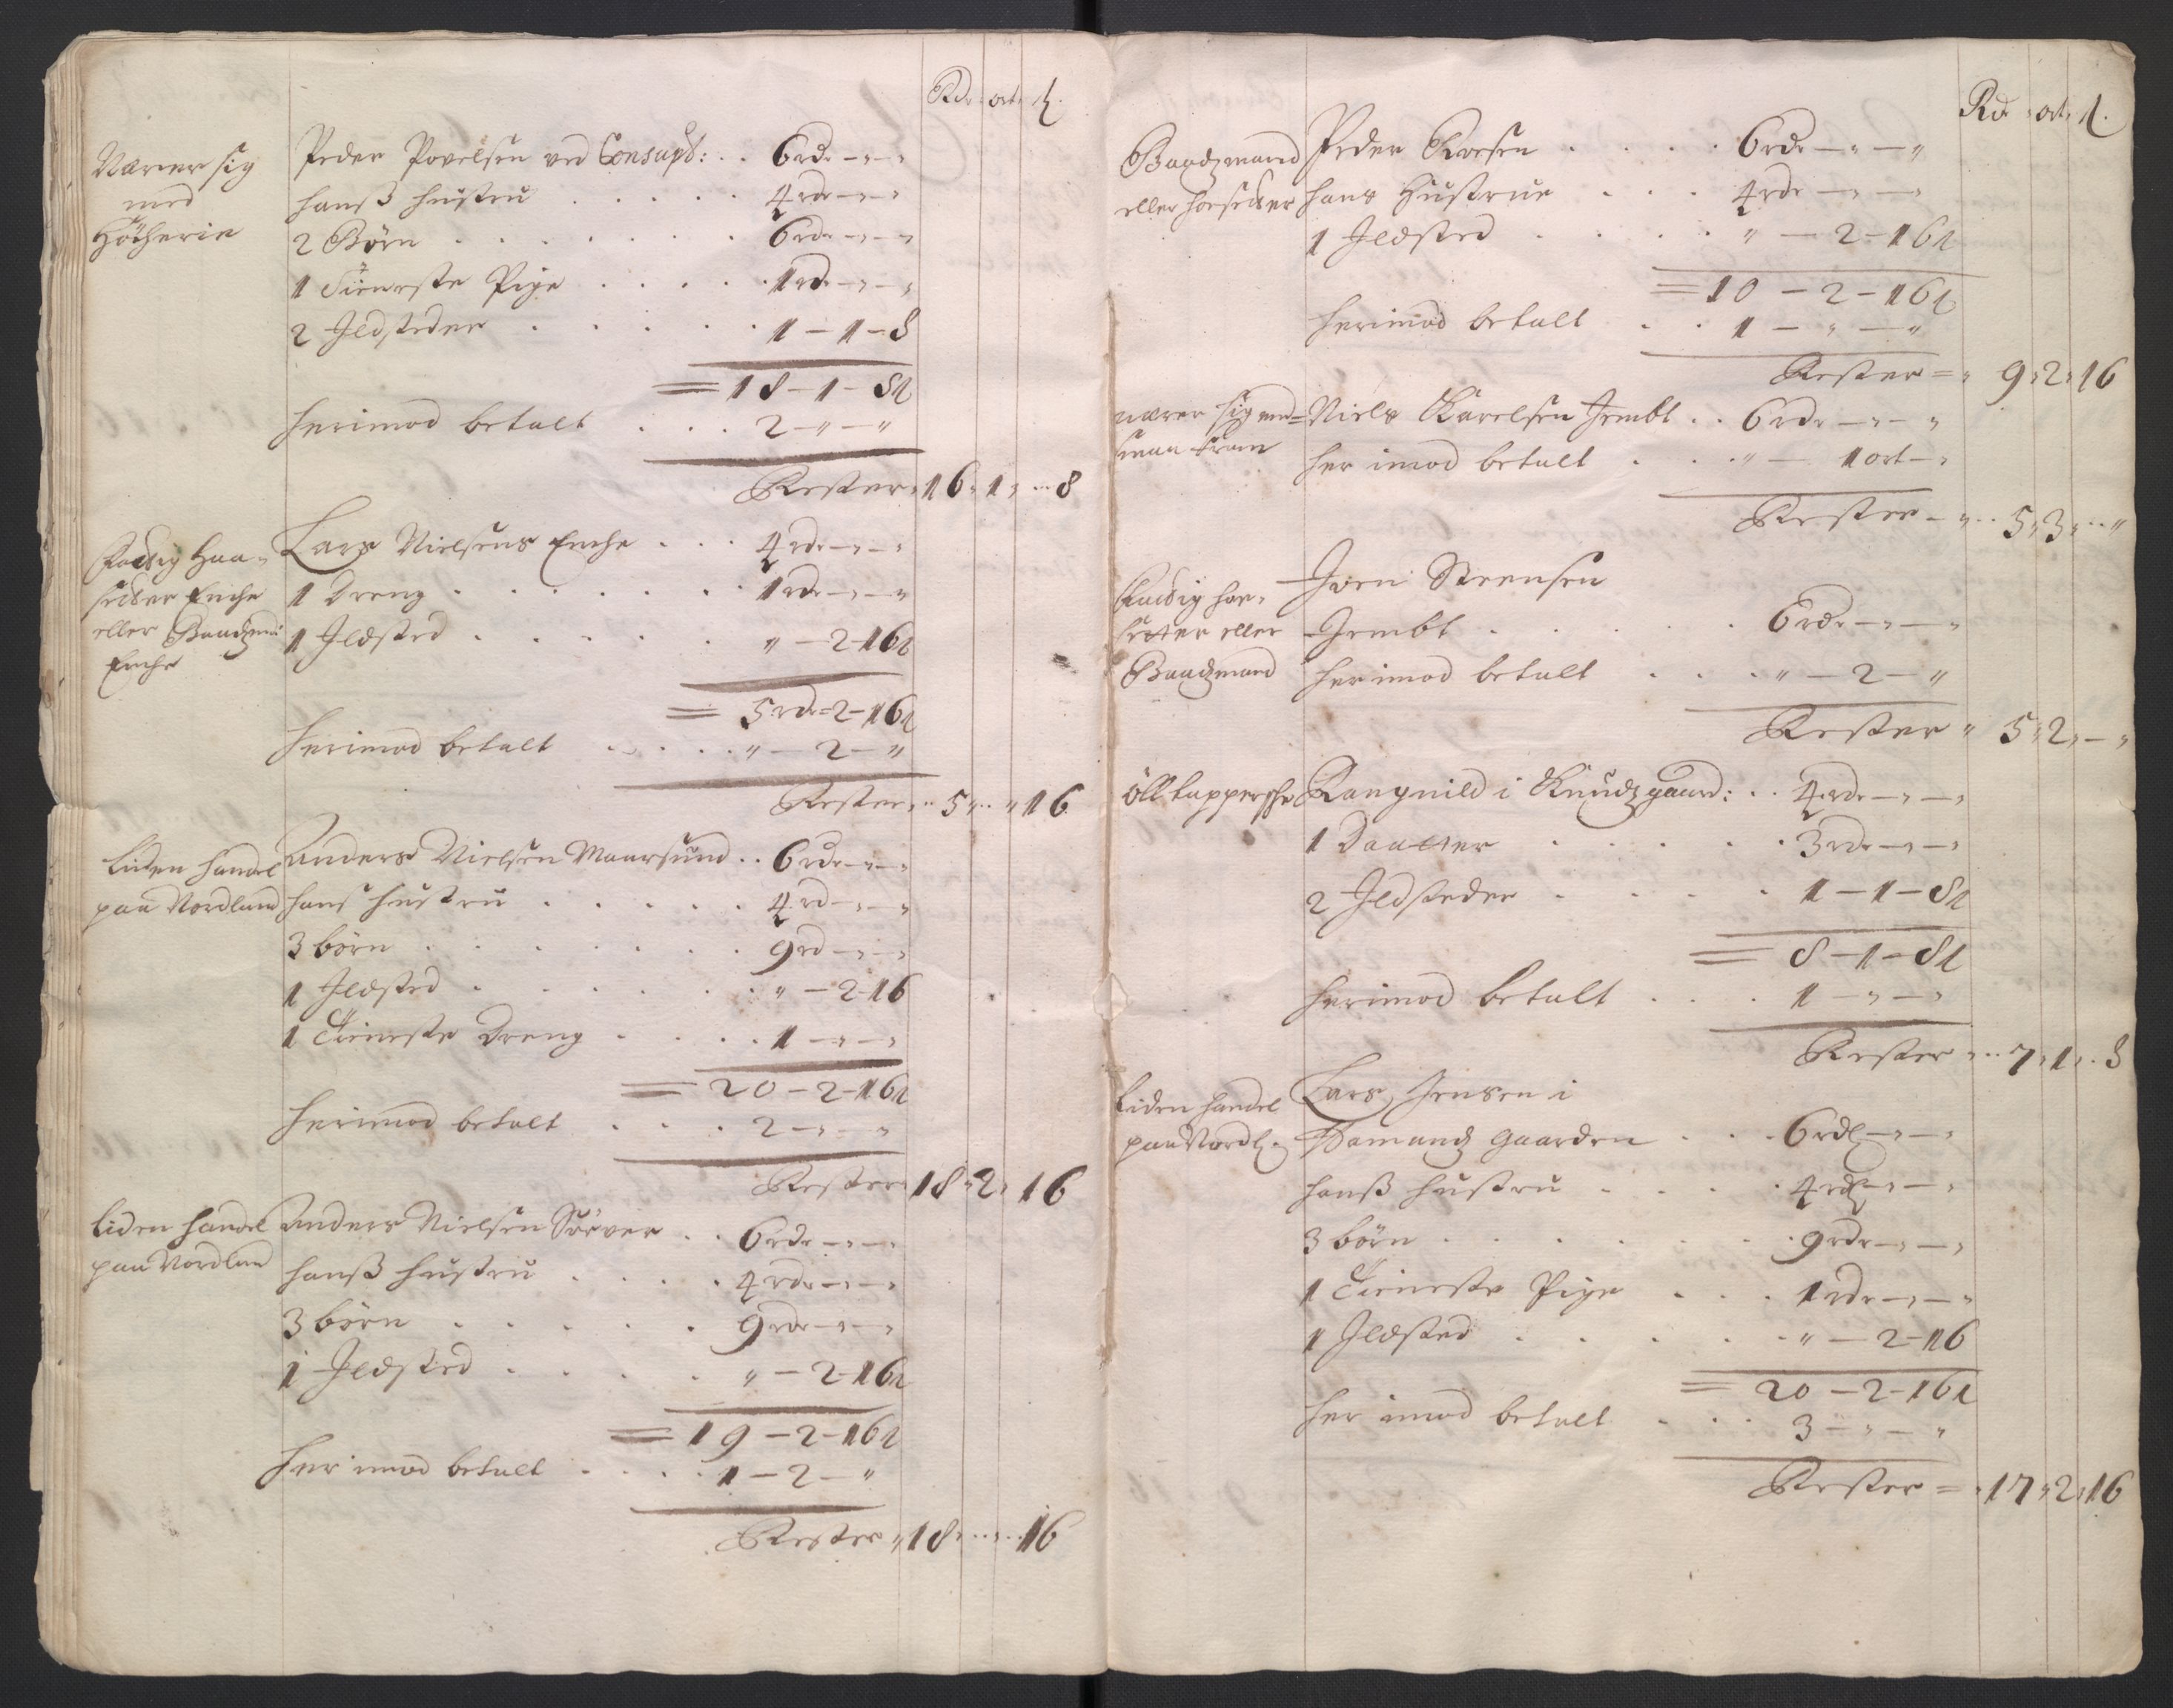 Rdr ort ß
Nærer sig
med
Höcherie
Peder Povelsen ved Consupt: . . 6 rdr - " - "
hanß hustru . . . . . 4 rdr - " - "
2 Börn . . . . . . . 6 rdr - " - "
1 Tieneste Pige . . . . . 1 rdr - " - "
2 Ildsteder . . . . . 1 - 1 - 8
= 18 - 1 - 8 ß
herimod betalt . . . 2 - " - "
Rester " 16 " 1 " - 8
Fattig Haa-
sedker Enche
eller Baadzm:
Enche
Lars Nielsens Enche . . . 4 rdr - " - "
1 Dreng . . . . . . . 1 rdr - " - "
1 Ildsted . . . . . . " - 2 - 16 ß
= 5 rdr = 2 - 16 ß
herimod betalt . . . . " - 2 - "
Rester " 5 " " 16
Liden handel
paa Nordland
Anders Nielsen Maarsund . . 6 rdr - " - "
hans hustru . . . . . 4 rd - " - "
3 börn . . . . . . . 9 rd - " - "
1 Ildsted . . . . . . " - 2 - 16
1 Tieneste Dreng . . . . 1 - " - "
= 20 - 2 - 16 ß
herimod betalt . . . 2 - " - "
Rester " 18 " 2 " 16
Liden handel
paa Nordland
Anders Nielsen Sörver . . 6 rdr - " - "
hanß hustru . . . . 4 rdr - " - "
3 börn . . . . . . 9 rdr - " - "
1 Ildsted . . . . . " - 2 - 16 ß
= 19 - 2 - 16 ß
her imod betalt . . . . 1 - 2 - "
Rester " 18 " - " - 16
Rdr ort ß
Baadzmand
eller hoesedker
Peder Roesen . . . . 6 rdr - " - "
hans Hustrue . . . 4 rdr - " - "
1 Ildsted . . . . " - 2 - 16 ß
= 10 - 2 - 16 ß
herimod betalt . . 1 - " - "
Rester = " 9 " 2 " 16
nærer sig med
smaa kram
Niels Karelsen Jembt . . 6 rdr - " - "
her imod betalt . . . " - 1 ort - "
Rester - " 5 " 3 " - "
Fattig hoe-
setter eller
Baadzmand
Joen Steensen
Jembt . . . . . . 6 rdr - " - "
herimod betalt . . . " - 2 - "
Rester " 5 " 2 " - "
Ölltappersche
Rangnild i Knudzgaard: . . 4 rdr - " - "
1 Daatter . . . . . 3 rdr - " - "
2 Ildsteder . . . . 1 - 1 - 8 ß
= 8 - 1 - 8 ß
herimod betalt . . . 1 - " - "
Rester " 7 " 1 " 8
Liden handel
paa Nordl:
Lars Jensen i
gaarden . . . 6 rdl - " - "
hanß hustru . . . . 4 rdl - " - "
3 börn . . . . . . 9 rdr - " - "
1 Tieneste Pige . . . 1 rdr - " - "
1 Ildsted . . . . . " - 2 - 16
= 20 - 2 - 16 ß
her imod betalt . . . 3 - " - "
Rester = " 17 " 2 " 16